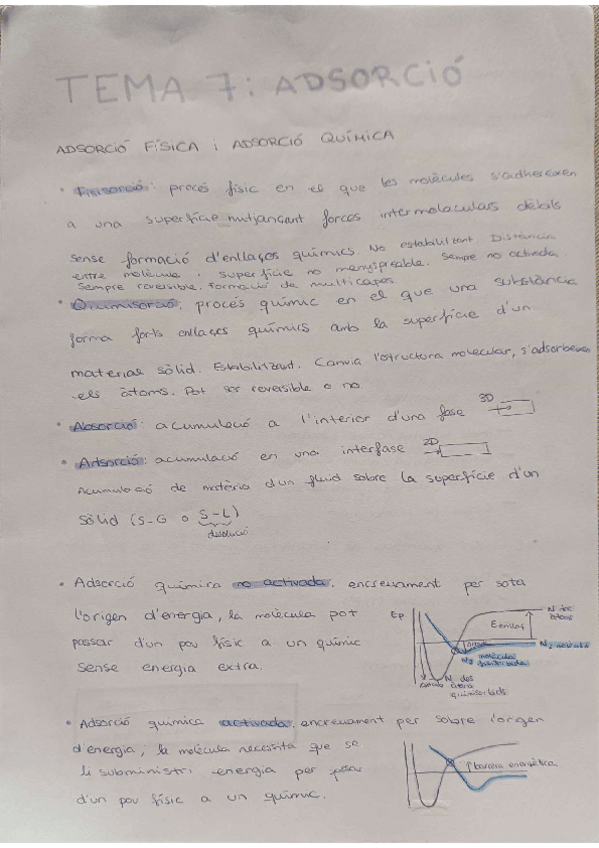 TEMA 7: ADSORCIÓ
ADSORCIÓ FÍSICA i ADSORCIÓ QUÍMICA
• Fisisorció: procés físic en el que les molècules s'adhereixen
a una superfície mitjançant forces intermoleculars dèbils
sense formació d'enllaços químics. No estabilitzant. Distància
entre molècula i superfície no menyspreable. Sempre no activada.
Sempre reversible. Formació de multicapes.
• Quimisorció: procés químic en el que una substància
forma forts enllaços químics amb la superfície d'un
material sòlid. Estabilitzant. Canvia l'estructura molecular, s'adsorbeixen
els àtoms. Pot ser reversible o no.
• Absorció: acumulació a l'interior d'una fase 3D
• Adsorció: acumulació en una interfase 2D
Acumulació de matèria d'un fluid sobre la superfície d'un
sòlid (S-G o S-L)
dissolució
• Adsorció química no activada: encreuament per sota
l'origen d'energia, la molècula pot
passar d'un pou físic a un químic
sense energia extra.
Ep
àtoms
E enllaç
N2 molècula
fisisorbida
N dos
àtoms
quimisorbits
• Adsorció química activada: encreuament per sobre l'origen
d'energia, la molècula necessita que se
li subministri energia per passar
d'un pou físic a un químic.
barrera energètica